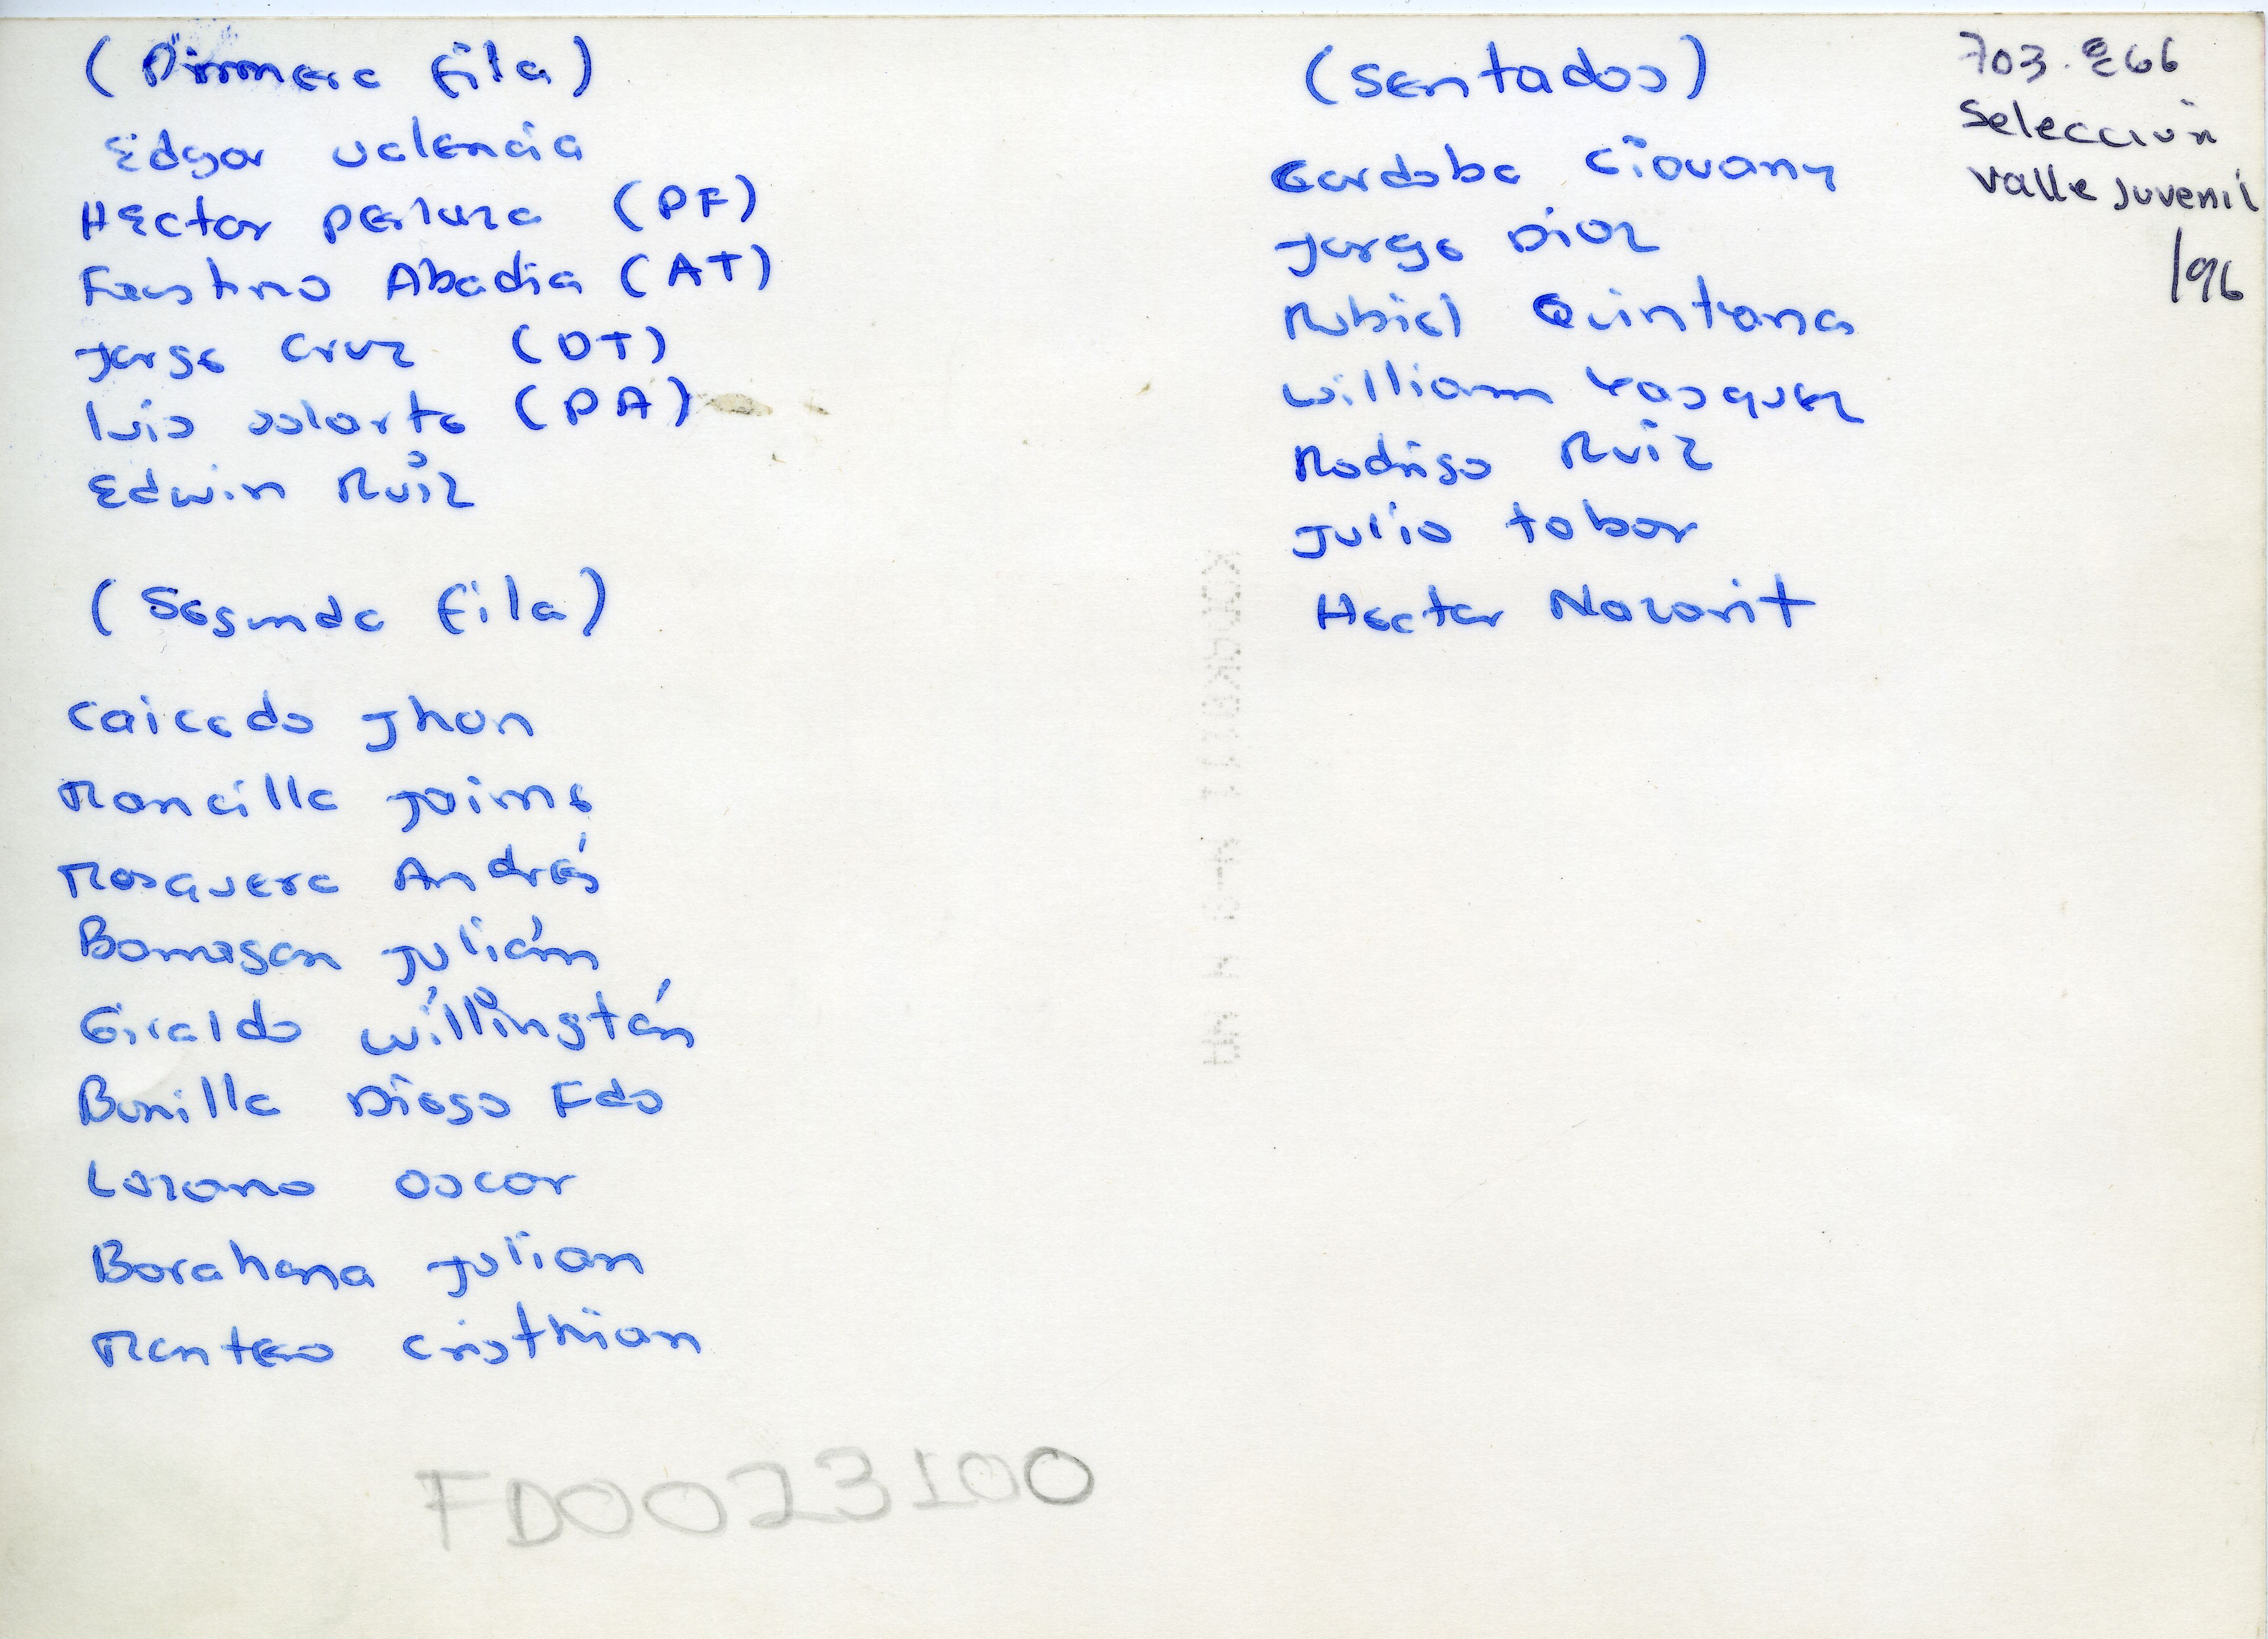 (Primera fila)
Edgar Valencia
Hector Perlaza (PF)
Faustino Abadia (AT)
Jorge Cruz (DT)
Luis Solarte (PA)
Edwin Ruiz
(Segunda fila)
Caicedo Jhon
Mancilla Jaime
Mosquera Andrés
Julián
Giraldo Willington
Bonilla Diego Fdo
Lozano Oscar
Barahona Julian
Montero Cristhian
FD0023100
(Sentados)
Cordoba Giovany
Jorge Diaz
Rubiel Quintana
William Vasquez
Rodrigo Ruiz
Julio Tobar
Hector Nazarit
703.
Selección
Valle Juvenil
/96